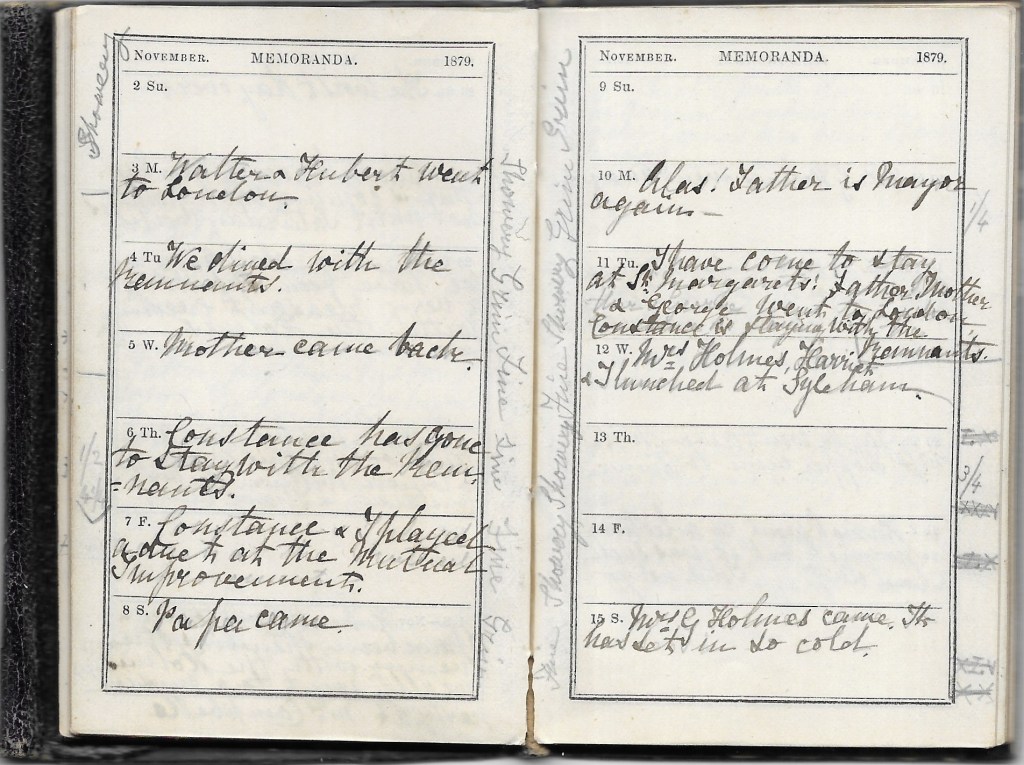 Showery
NOVEMBER. MEMORANDA. 1879.
2 Su.
3 M. Walter & Hubert went
to London.
4 Tu We dined with the
Remnants.
5 W. Mother came back.
6 Th. Constance has gone
to stay with the Rem-
-nants.
7 F. Constance & I played
a duet at the Mutual
Improvement.
8 S. Papa came.
1/2
Showery Fine Fine Fine Fine
Fine Showery Showery Fine Showery Fine
NOVEMBER. MEMORANDA. 1879.
9 Su.
10 M. Alas! Father is Mayor
again —
1/4
11 Tu. I have come to stay
at St. Margarets! Father, Mother
& George went to London,
Constance is staying with the
Remnants.
12 W. Mrs Holmes, Harriet
& I lunched at Syleham
13 Th.
3/4
14 F.
15 S. Mrs G Holmes came. It
has set in so cold.